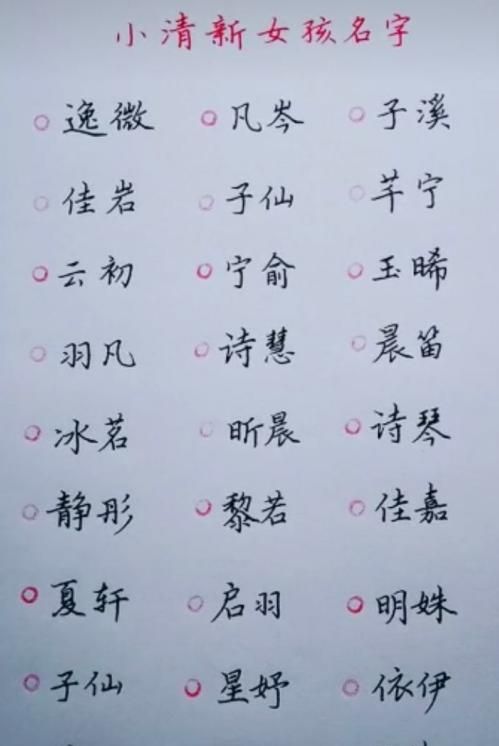 小清新女孩名字
逸微 凡岑 子溪
佳岩 子仙 芊宁
云初 宁俞 玉晞
羽凡 诗慧 晨笛
冰茗 昕晨 诗琴
静彤 黎若 佳嘉
夏轩 启羽 明姝
子仙 星妤 依伊